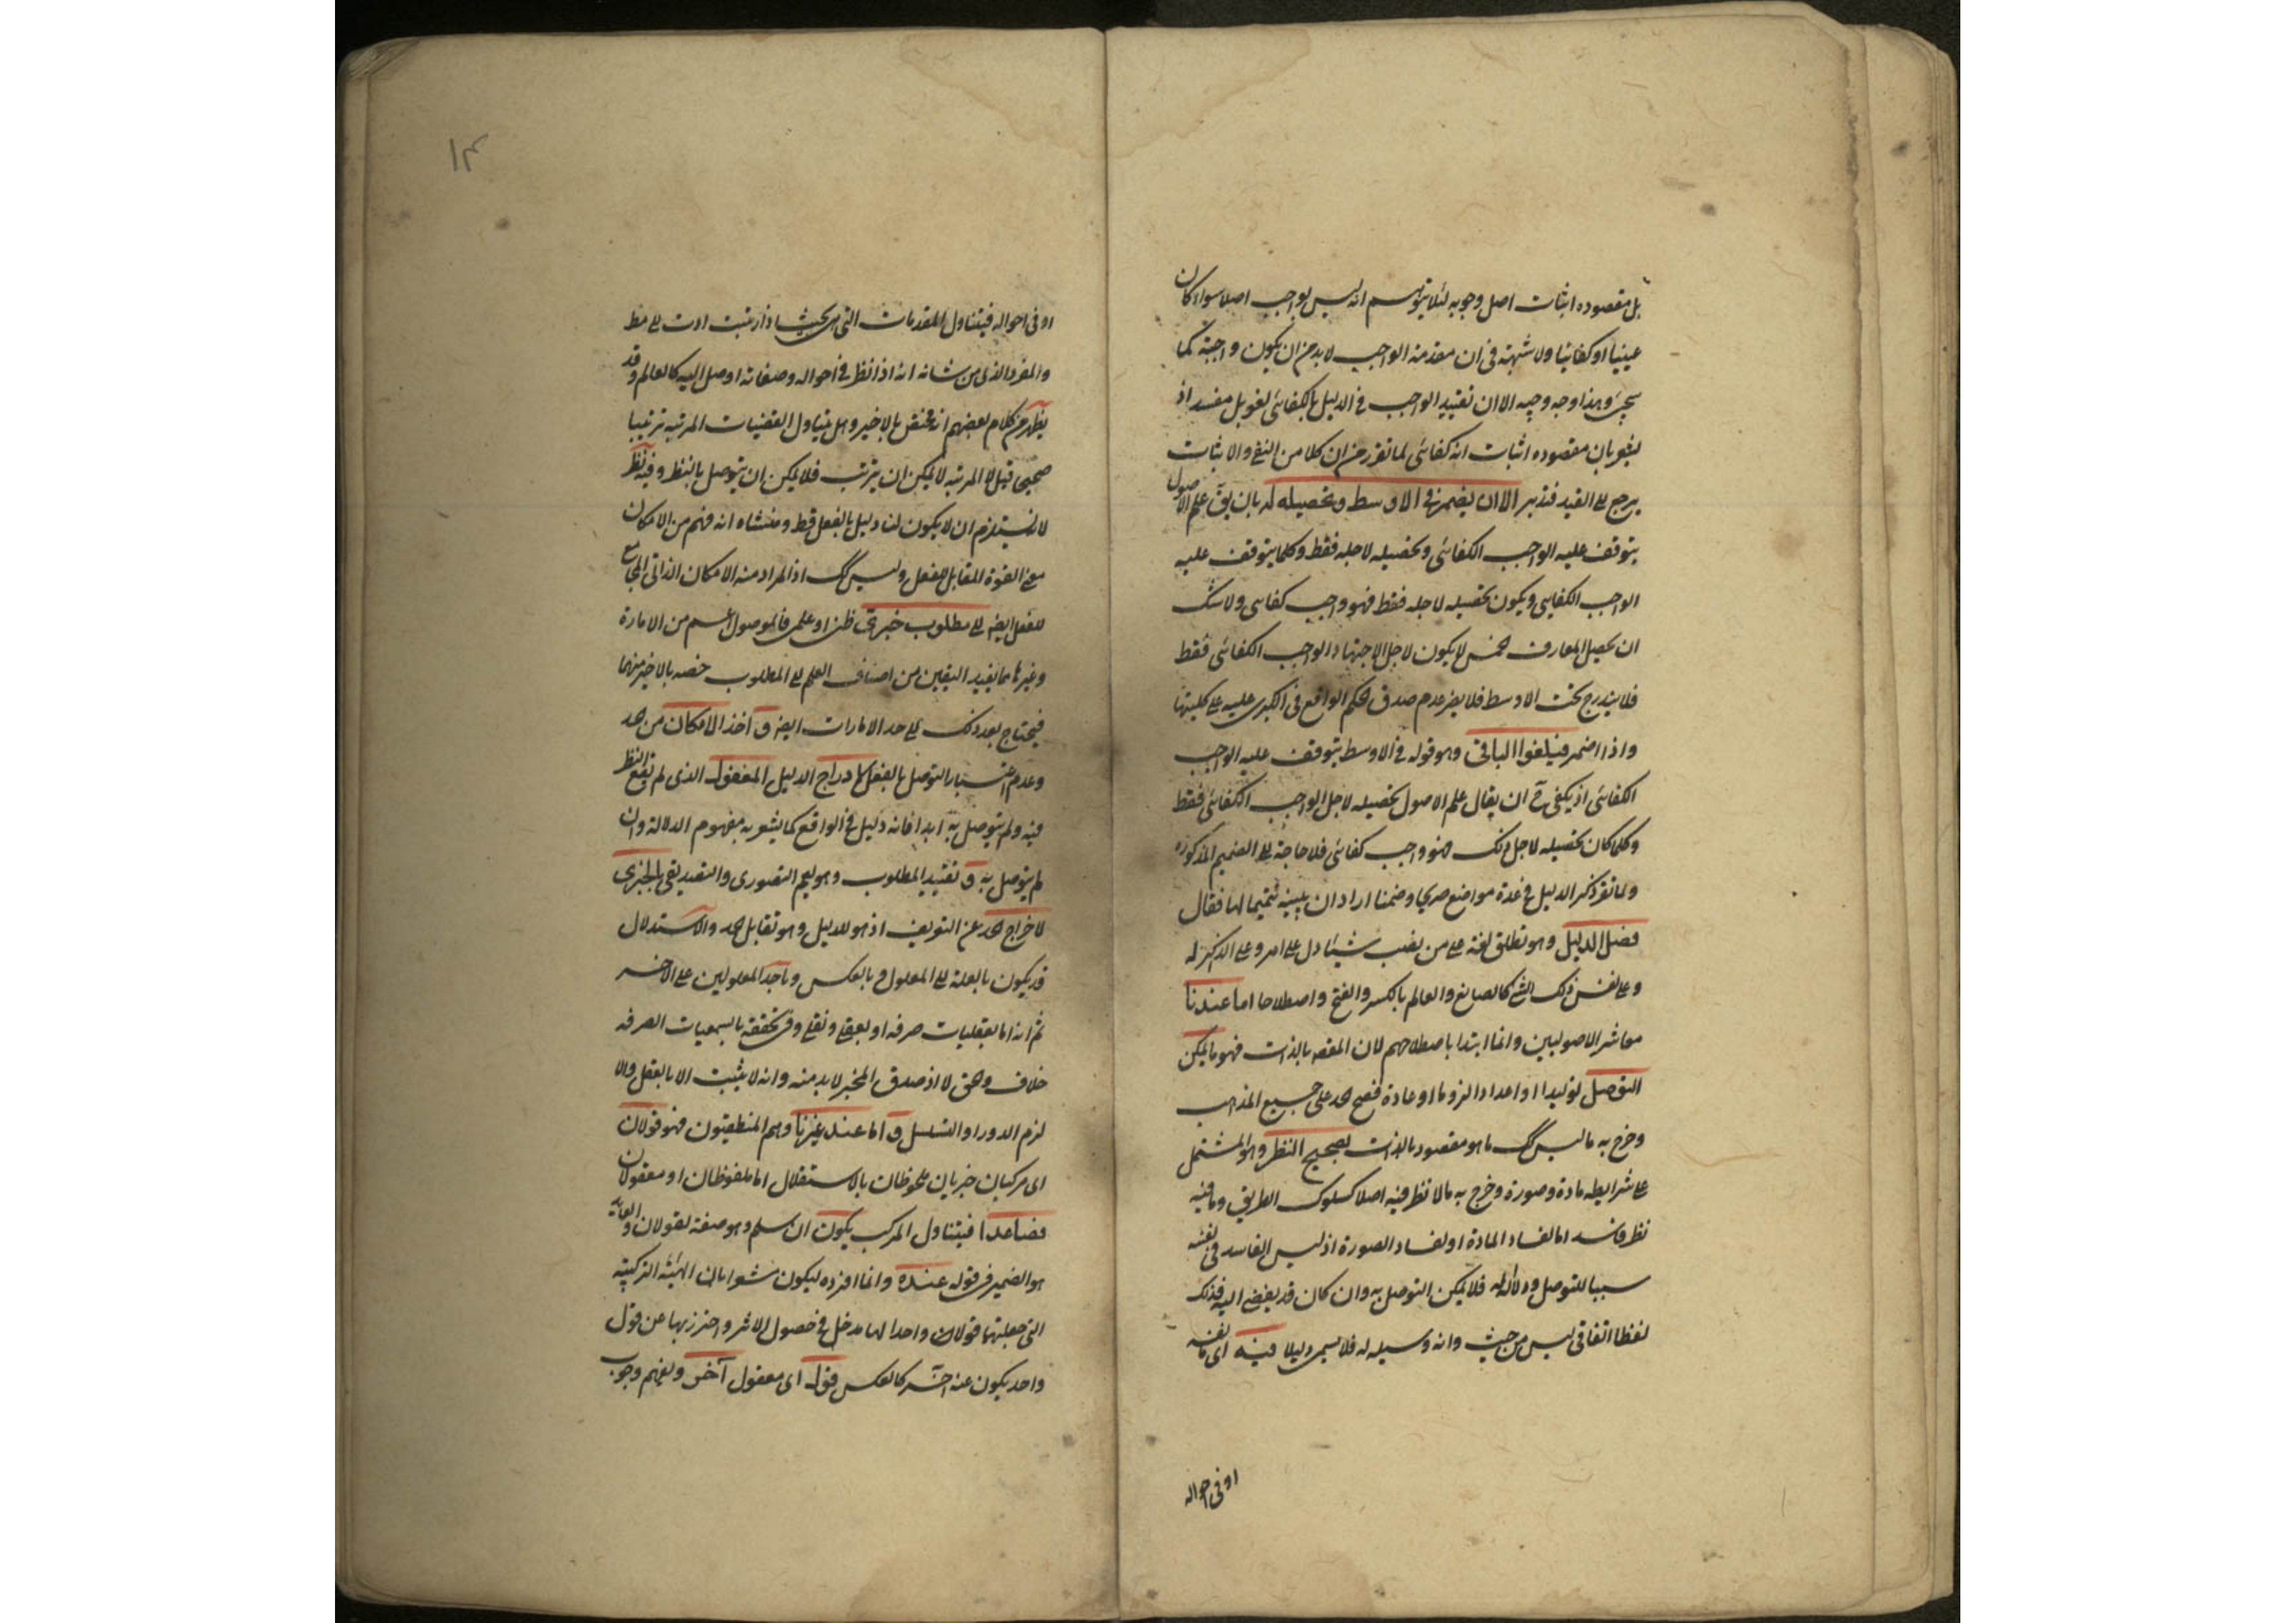 بل مقصوده اثبات اصل وجوبه لئلا يتوهم انه ليس بواجب اصلا سواء كان
عينيا او كفائيا ولا شبهة فى ان مقدمة الواجب لا بد من ان يكون واجبة كما
سيجئ وهذا وجه وجيه الا ان تقييد الواجب فى الدليل بالكفائى لغو بل مفسد اذ
يشعر بان مقصوده اثبات انه كفائى لما تقرر من ان كلا من النفى والاثبات
يرجع الى القيد فتدبر الا ان يضمر فى الاوسط وتحصيله له بان يق علم الاصول
يتوقف عليه الواجب الكفائى وتحصيله لاجله فقط وكلما يتوقف عليه
الواجب الكفايى ويكون تحصيله لاجله فقط فهو واجب كفايى ولا شك
ان تحصيل المعارف الخمس لا يكون لاجل الاجتهاد الواجب الكفائى فقط
فلا يندرج تحت الاوسط فلا يضر عدم صدق الحكم الواقع فى الكبرى عليه على كليتها
واذا اضمر فيلغوا الباقى وهو قوله فى الاوسط يتوقف عليه الواجب
الكفائى اذ يكفى ح ان يقال علم الاصول تحصيله لاجل الواجب الكفائى فقط
وكلما كان تحصيله لاجل ذلك فهو واجب كفائى فلا حاجة الى الضميم المذكورة
ولما تقرر ذكر الدليل فى عدة مواضع صريحا وضمنا اراد ان يبينه تتميما لها فقال
فصل الدليل وهو يطلق لغة على من نصب شيئا دل على امر وعلى الذاكر له
وعلى نفس ذلك الشئ كالصانع والعالم بالكسر والفتح واصطلاحا اما عندنا
معاشر الاصوليين وانما ابتدا باصطلاحهم لان المقصد بالذات فهو ما يمكن
التوصل توليدا او اعدادا لزوما او عادة فصح الحد على جميع المذاهب
وخرج به ما ليس كك ما هو مقصود بالذات بصحيح النظر وهو المشتمل
على شرايطه مادة وصورة وخرج به ما لا نظر فيه اصلا كسلوك الطريق وما فيه
نظر فاسد اما لفساد المادة او لفساد الصورة اذ ليس الفاسد فى نفسه
سببا للتوصل ولا آلة له فلا يمكن التوصل به وان كان قد يفضى اليه فذلك
لفظا اتفاقى ليس من حيث وانه وسيله له فلا يسمى دليلا فيه اى نفسه
او فى احواله
١٣
او فى احواله فيتناول المقدمات التى هى بحيث اذا رتبت ادت الى مط
والمفرد الذى من شانه انه اذا نظر فى احواله وصفاته اوصل اليه كالعالم وقد
يظهر من كلام بعضهم انه مختص بالاخير وهل يتناول القضيات المرتبة ترتيبا
صحيحا قيل لا المرتبة لا يمكن ان يترتب فلا يمكن ان يتوصل بالنظر وفيه نظر
لانه يستلزم ان لا يكون لنا دليل بالفعل قط ومنشاه انه فهم من الامكان
معنى القوة المقابل للفعل وليس كك اذ المراد منه الامكان الذاتى المجامع
للفعل ايضا الى مطلوب خبرى ظنى او علمى فالموصول اعم من الامارة
وغيرها مما يفيد اليقين من اصناف العلم الى المطلوب خصه بالاخير منهما
فيحتاج بعد ذلك الى حد الامارات ايضا و اخذ الامكان من حد
وعدم اعتبار التوصل بالفعل لادراج الدليل المغفول الذى لم يقع النظر
فيه ولم يتوصل به ابدا فانه دليل فى الواقع كما يشعر به مفهوم الدلالة وان
لم يتوصل به و تقييد المطلوب وهو يعم التصورى والتصديقى بالخبرى
لاخراج الحد عن التعريف اذ هو للدليل وهو تقابل الحد والاستدلال
قد يكون بالعلة على المعلول وبالعكس وباحد المعلولين على الاخر
ثم انه اما بعقليات صرفه او بعقلى ونقلى وفى تحققه بالسمعيات الصرفه
خلاف والحق لا اذ صدق المخبر لا بد منه وانه لا يثبت الا بالعقل والا
لزم الدور او التسلسل و اما عند غيرنا وهم المنطقيون فهو قولان
اى مركبان خبريان ملحوظان بالاستقلال اما ملفوظان او معقولان
فصاعدا فيتناول المركب يكون ان سلم وهو صفة لقولان والعايد
هو الضمير فى قوله عنده وانما افرده ليكون مشعرا بان الهيئة التركيبية
التى جعلتها قولان واحدا لها مدخل فى حصول الاثر واحترز بها عن قول
واحد يكون عنه اخر كالعكس قول اى معقول آخر ويفهم وجوب